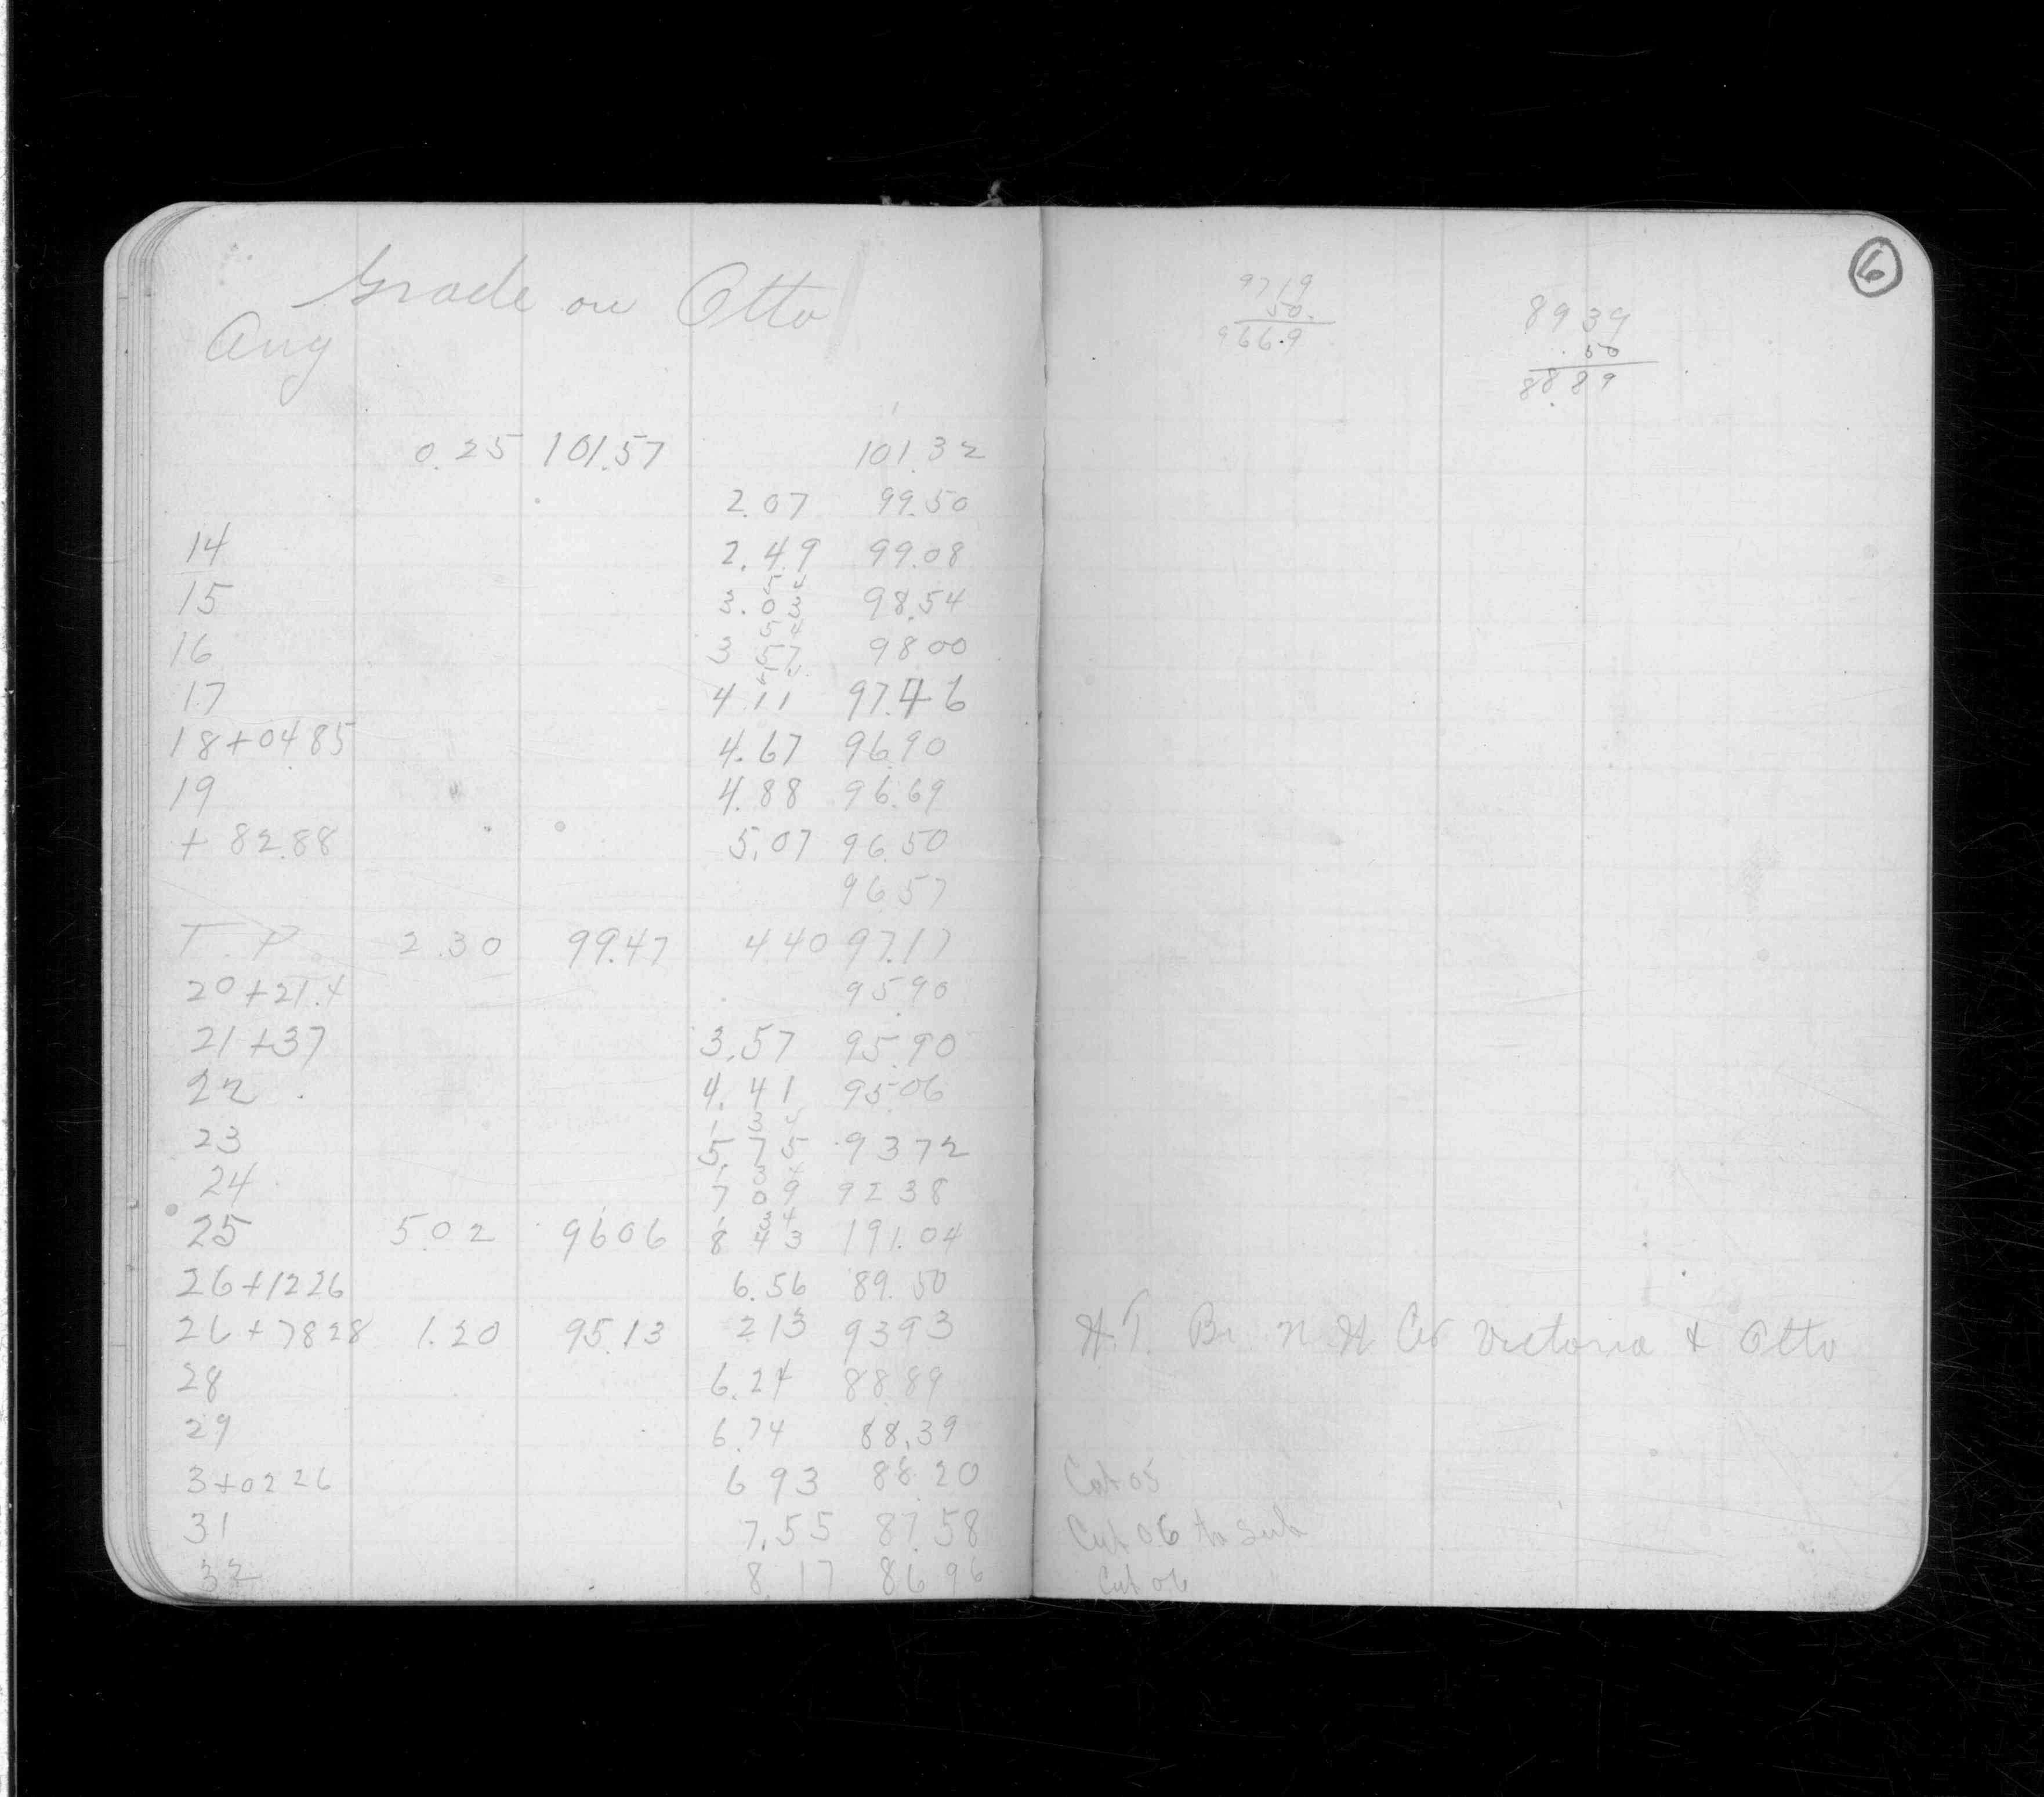 Grade on Otto
Aug
0.25 101.57 101.32
2.07 99.50
14 2.49 99.08
54
15 3.03 98.54
54
16 3 57 98 00
17 4.11 97.46
18+04.85 4.67 96.90
19 4.88 96.69
+ 82.88 5.07 96.50
96 57
T. P 2.30 99.47 4 40 97.17
20+21.4 95 90
21+37 3.57 95.90
22 4.41 95 06
1 34
23 5.75 93 72
1 34
24 7 09 92 38
1 34
25 5.02 96 06 8 43 191.04
26+12 26 6.56 89.50
26+78 28 1.20 95.13 2 13 93 93
28 6.24 88.89
29 6.74 88.39
3+02 26 6 93 88.20
31 7.55 87.58
32 8 17 86 96
6
97 19
50.
966.9
89 39
.50
88.89
H.T. Br. N. W Cor Victoria & Otto
Cut 05
Cut 0.6 to sub
Cut 06